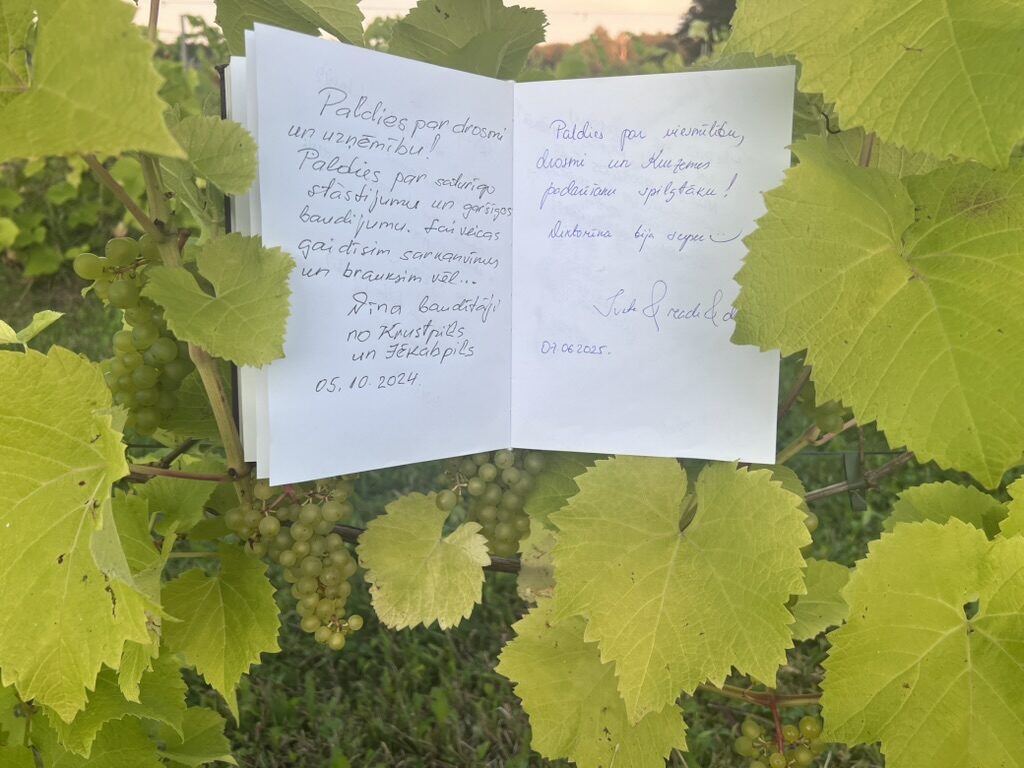 Paldies par drosmi
un uzņēmību!
Paldies par saturīgo
stāstījumu un garšīgos
baudījumu. Lai veicas
gaidīsim sarkanvīnus
un brauksim vēl...
Vīna baudītāji
no Krustpils
un Jēkabpils
05.10.2024.
Paldies par viesmīlību,
drosmi un Kurzemes
padarīšanu spilgtāku!
bija super
07.06.2025.